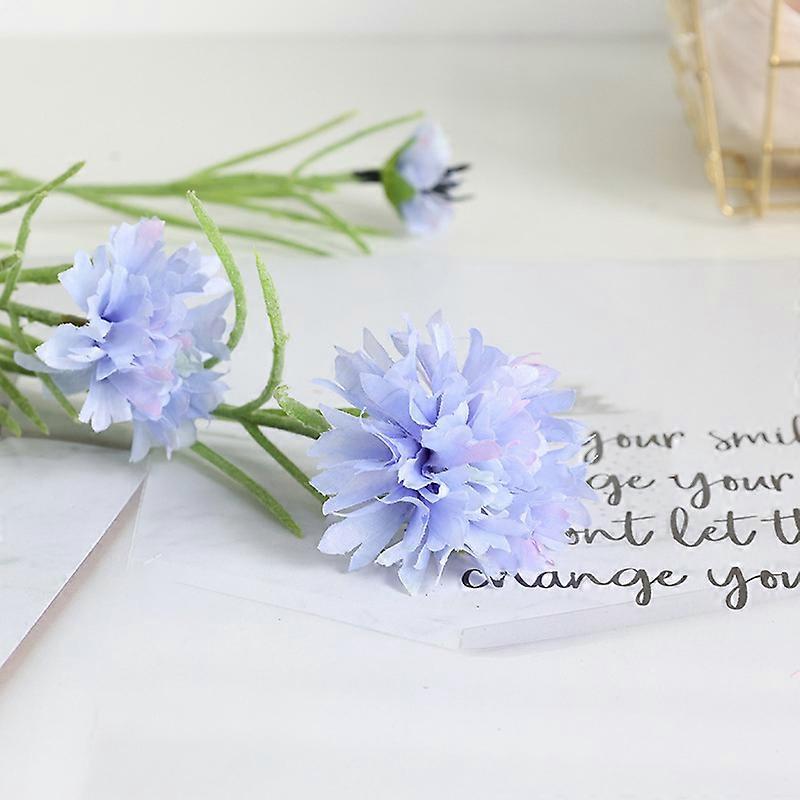 your smil
ge your
ont let th
change you